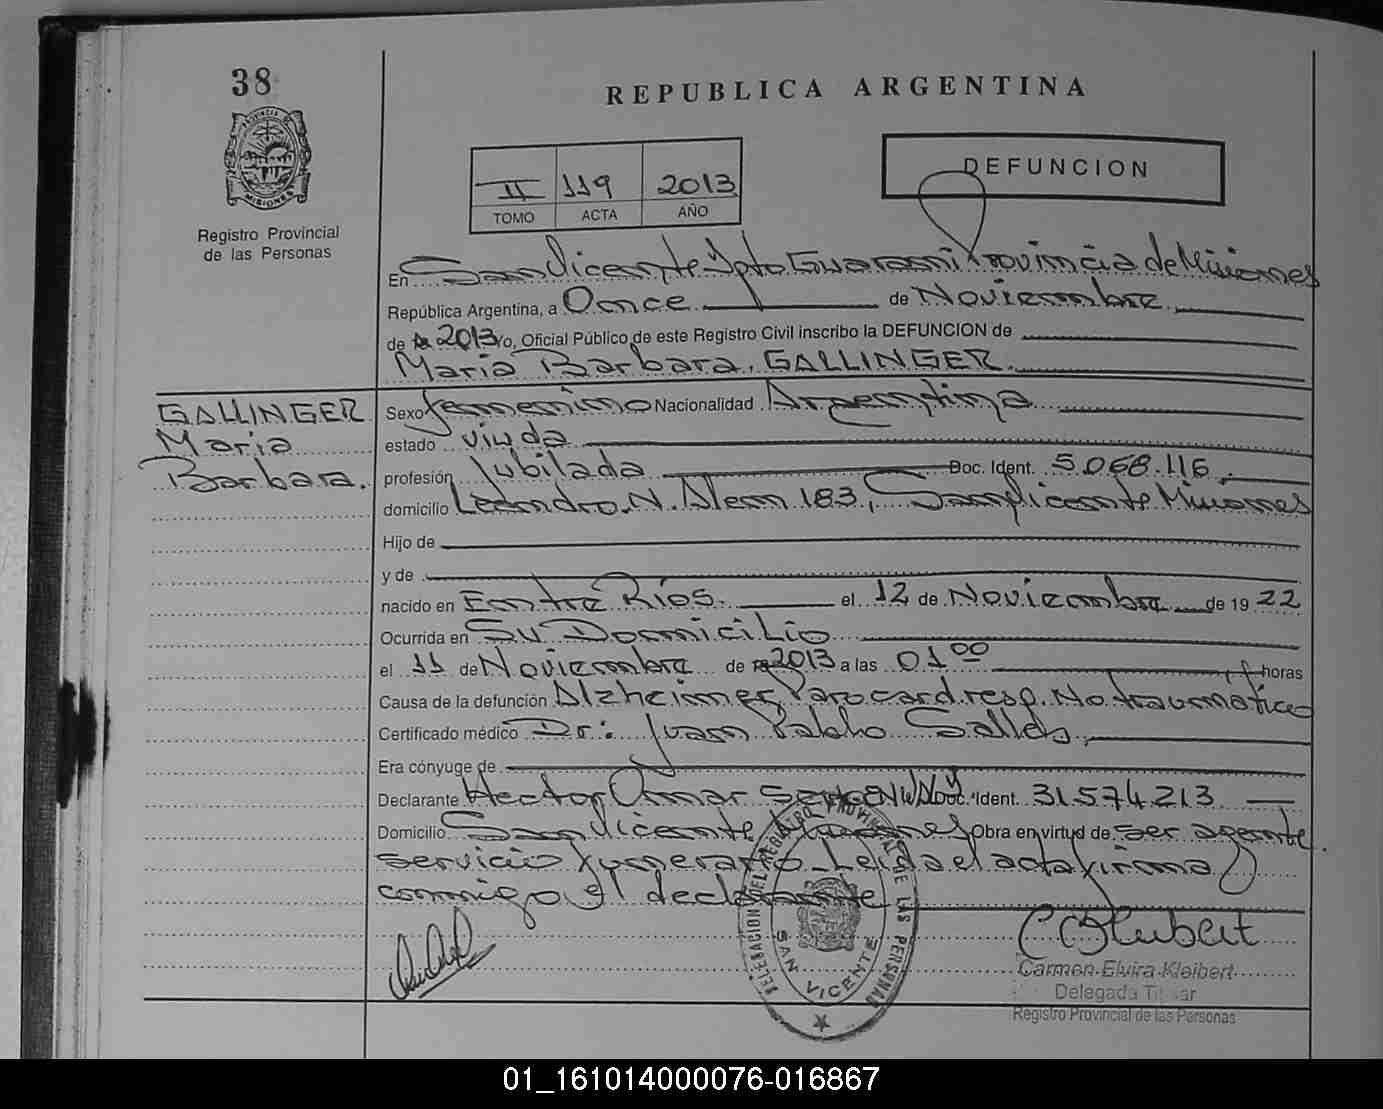 38
REPUBLICA ARGENTINA
PROVINCIA DE
MISIONES
Registro Provincial
de las Personas
II 119 2013
TOMO ACTA AÑO
DEFUNCION
En San Vicente Dpto Guarani Provincia de Misiones
República Argentina, a Once de Noviembre
de 2013 Yo, Oficial Público de este Registro Civil inscribo la DEFUNCION de
Maria Barbara, GALLINGER.
GALLINGER
Maria
Barbara.
Sexo femenino Nacionalidad Argentina
estado viuda
profesión Jubilada Doc. Ident. 5.068.116.
domicilio Leandro. N. Alem 183, San Vicente Misiones
Hijo de
y de
nacido en Entre Ríos. el 12 de Noviembre de 1922
Ocurrida en Su Domicilio
el 11 de Noviembre de 2013 a las 01 00 horas
Causa de la defunción Alzheimer, Paro card. resp. No traumatico
Certificado médico Dr: Juan Pablo
Era cónyuge de
Declarante Hector Omar Doc. Ident. 31.574.213
Domicilio San Vicente Misiones Obra en virtud de ser agente
servicio funerario Leida el acta firma
conmigo el declarante
DELEGACION DEL REGISTRO PROVINCIAL DE LAS PERSONAS
SAN VICENTE
Carmen Elvira Kleibert
Delegada Titular
Registro Provincial de las Personas
01_161014000076-016867